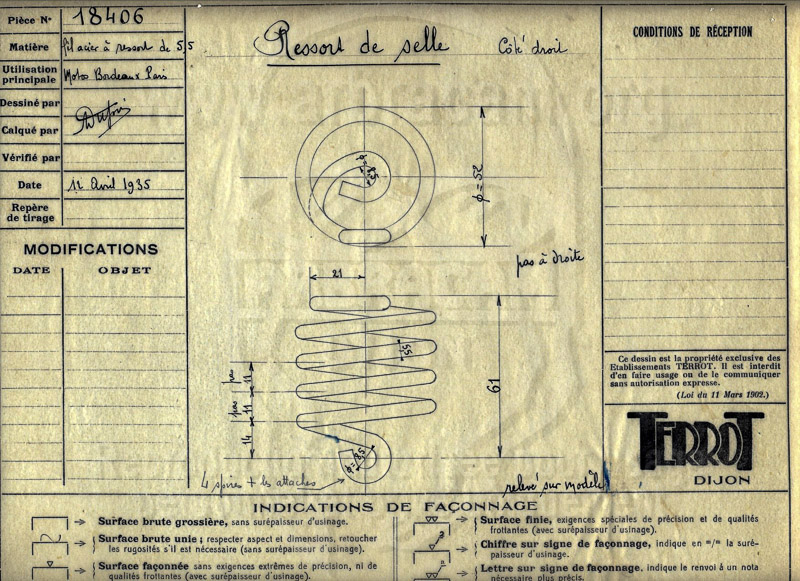 Pièce N° 18406
Matière fil acier à ressort de 5,5
Utilisation principale Motos Bordeaux Paris
Dessiné par
Calqué par
Vérifié par
Date 12 Avril 1935
Repère de tirage
MODIFICATIONS
DATE OBJET
Ressort de selle Côté droit
φ = 52
φ 8,5
pas à droite
21
5,5
61
pas 11
pas 11
14
φ = 8,5
4 spires + les attaches
relevé sur modèle
CONDITIONS DE RÉCEPTION
Ce dessin est la propriété exclusive des
Etablissements TERROT. Il est interdit
d'en faire usage ou de le communiquer
sans autorisation expresse.
(Loi du 11 Mars 1902.)
TERROT
DIJON
INDICATIONS DE FAÇONNAGE
Surface brute grossière, sans surépaisseur d'usinage.
Surface brute unie ; respecter aspect et dimensions, retoucher
les rugosités s'il est nécessaire (sans surépaisseur d'usinage).
Surface façonnée sans exigences extrêmes de précision, ni de
qualités frottantes (avec surépaisseur d'usinage).
Surface finie, exigences spéciales de précision et de qualités
frottantes (avec surépaisseur d'usinage).
3
Chiffre sur signe de façonnage, indique en m/m la suré-
paisseur d'usinage.
Lettre sur signe de façonnage, indique le renvoi à un nota
nécessaire plus précis.